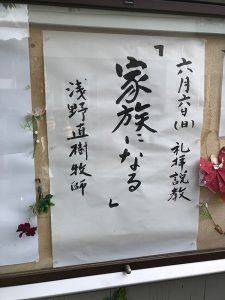 六月六日(日) 礼拝説教
「家族になる」
浅野直樹牧師